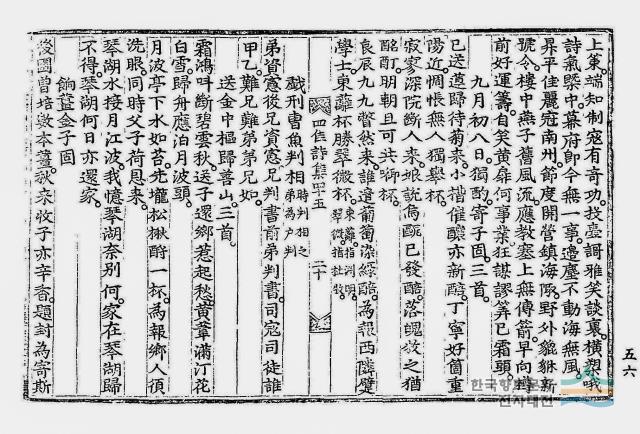 上策端知制寇有奇功找臺訶雅笑談裏橫槊哦
詩氣槩中幕府卽今無一事邊塵不動海無風
昇平佳麗寇南州節度開營鎭海陬野外貔貅新
號令樓中燕子舊風流應敎塞上無傳箭早向樽
前好運籌自笑黃扉何事業狂謀謬筭已霜頭
九月初八日獨酌寄子固三首
已送遵歸待菊來小槽催釀亦新醅丁寧好箇重
陽近惆悵無人獨擧杯
寂寥深院斷人來娘說烏甌已發醅落魄敎之猶
酩酊明朝且可共啣杯
良辰九九瞥然來誰遣葡萄染綠醅爲報西隣璧
學士東籬杯勝翠微杯東籬指淵明翠微指杜牧
四佳詩集卷之五
二十
戱刑曺魚判相時判相之弟爲戶判
弟資憲後兄資憲兄判書前弟判書司寇司徒誰
甲乙難兄難弟弟兄如
送金中樞歸善山三首
霜鴻叫斷碧雲秋送子還鄕惹起愁黃葦滿汀花
白雪歸舟應泊月波頭
月波亭下水如苔先壠松楸酹一杯爲報鄕人須
洗眼同時父子荷恩來
琴湖水接月江波我憶琴湖奈別何家在琴湖歸
不得琴湖何日亦還家
餉薑金子固
後園曾培數本薑秋來收子亦辛香題封爲寄斯
五六
한국향토문화
전자대전